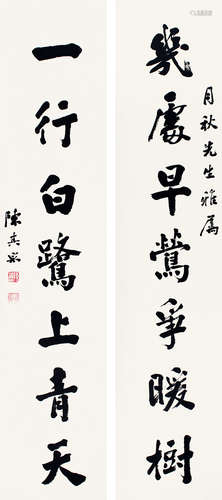 幾處早鶯爭暖樹
月秋先生雅屬
一行白鷺上青天